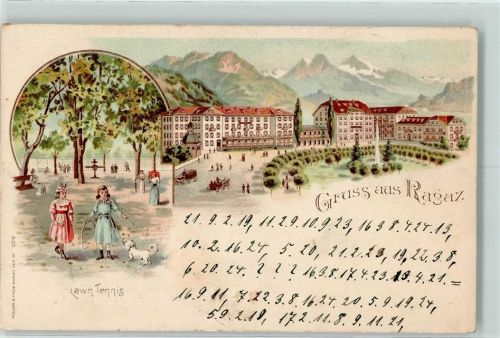 Gruss aus Ragaz.
21. 9. 2. 19, 11. 2 9. 10. 9. 23, 16 3 8. 4. 24. 13,
10. 2. 16. 24, 5. 20, 21. 2. 23, 19, 22. 3. 8,
6. 20. 24. ? ? ? 16 3 8. 17. 4. 23. 13. 4. 21. =
16. 9. 11, 7. 22. 3. 8. 16. 24. 20. 5. 9. 19. 24,
5. 9. 2. 10, 17 2. 11. 8. 9. 11. 21,
Lawn Tennis